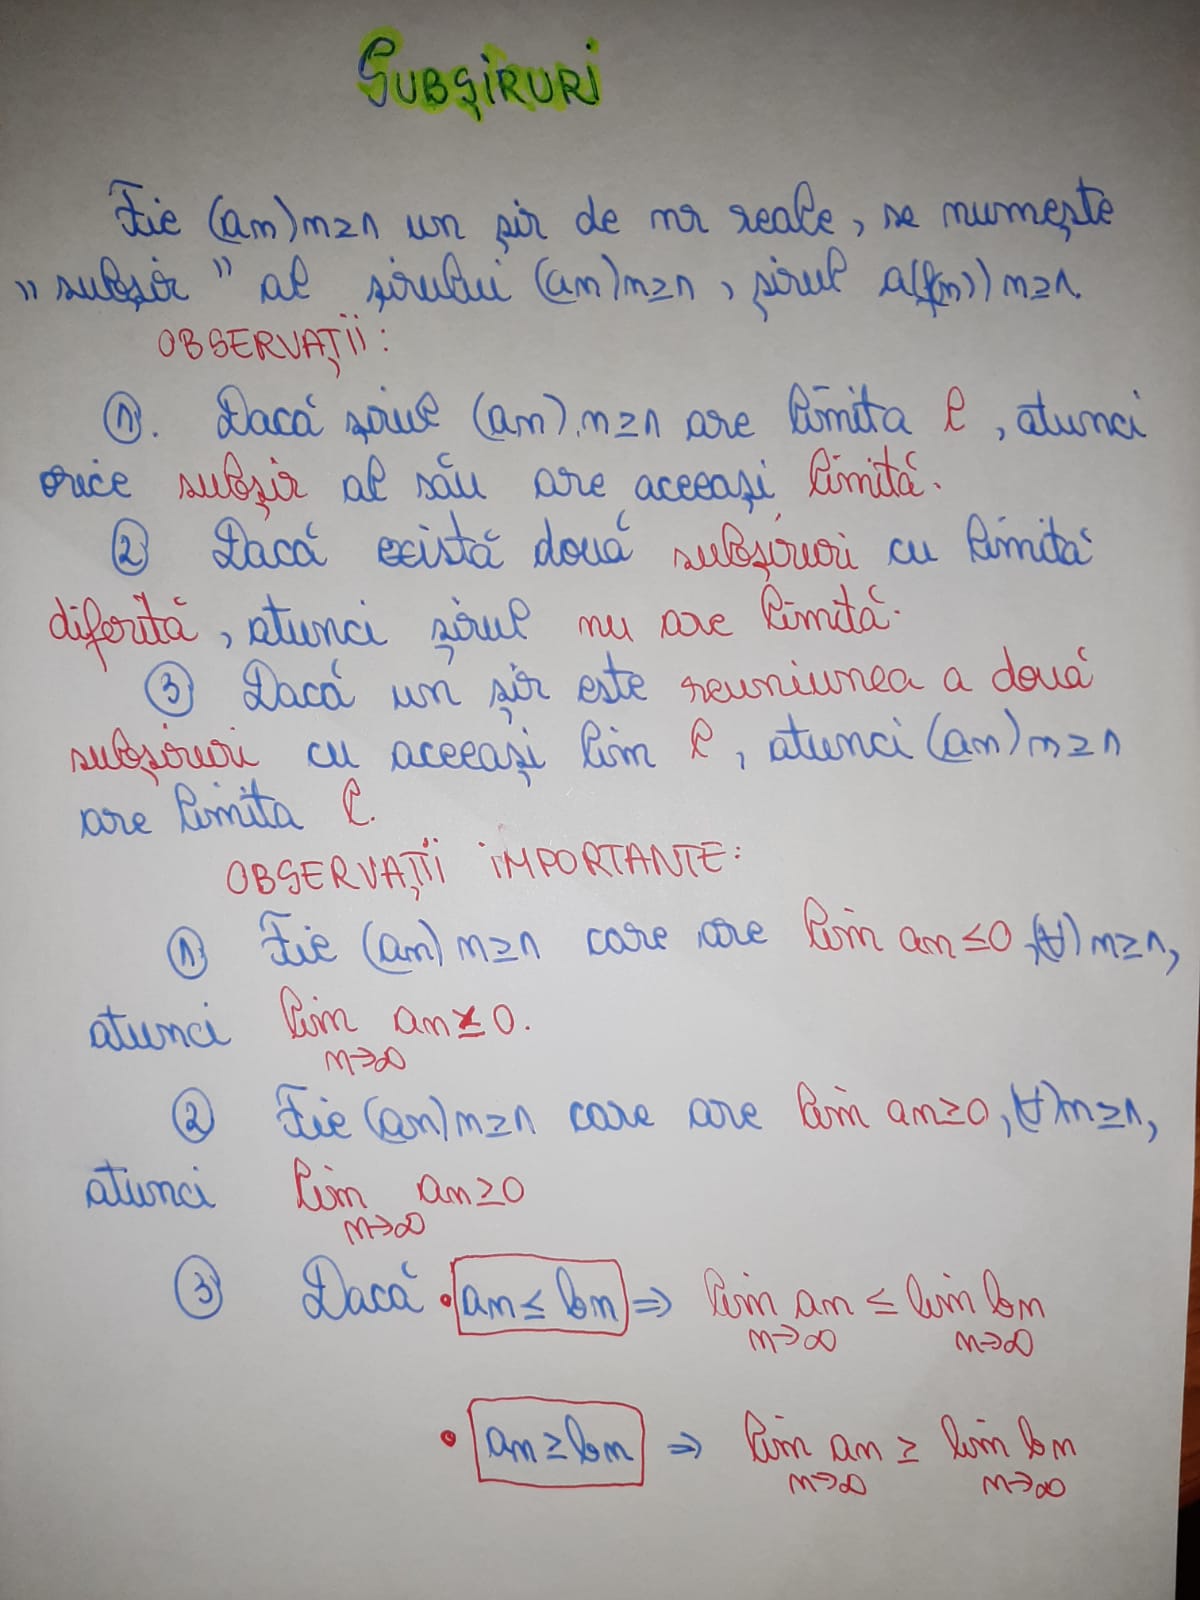 SUBȘIRURI
Fie (an)n≥1 un șir de nr reale, se numește
„subșir" al șirului (an)n≥1, șirul a(f(n))n≥1.
OBSERVAȚII:
①. Dacă șirul (an).n≥1 are limita l, atunci
orice subșir al său are aceeași limită.
② Dacă există două subșiruri cu limită
diferită, atunci șirul nu are limită.
③ Dacă un șir este reuniunea a două
subșiruri cu aceeași lim l, atunci (an)n≥1
are limita l.
OBSERVAȚII IMPORTANTE:
① Fie (an)n≥1 care are lim an≤0,(∀)n≥1,
atunci lim an≤0.
n→∞
② Fie (an)n≥1 care are lim an≥0,(∀)n≥1,
atunci lim an≥0
n→∞
③ Dacă • an≤bn ⇒ lim an ≤ lim bn
n→∞ n→∞
• an≥bn ⇒ lim an ≥ lim bn
n→∞ n→∞